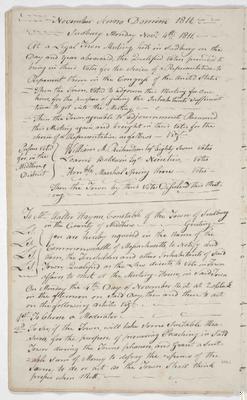 November Anno Domini 1816
Sudbury Monday Novr 4th 1816
At a Legal Town Meeting held in Sudbury on the
Day and year aforesaid the Qualified Voters proceeded to
bring in their Votes for the choice of a Representative to
Represent them in the Congress of the United States
Then the Town Voted to adjourn this Meeting for one
hour for the purpose of giving the Inhabitants Sufficient
time to get into the Meeting
Then the Town agreeable to adjournment Resumed
this Meeting again and brought in their Votes for the
choice of a Representative as follows Viz
Persons voted
for in the
Middlesex
District
William M. Richardson Esq Eighty Votes
Loammi Baldwin Esq Votes
Honble Marshal Spring Votes
Then the Town by their Vote Dissolved this Meet
ing
To Mr Walter Haynes Constable of the Town of Sudbury
in the County of Middlesex Greeting
You are hereby required in the Name of the
Commonwealth of Massachusetts to Notify and
warn the Freeholders and other Inhabitants of Said
Town Qualified as the Law directs to Vote in Town
affairs to Meet at the Meeting House in said Town
On Monday the 4th Day of November at 2 Clock
in the afternoon on Said Day then and there to act
on the following articles Viz
1st To Choose a Moderator
2d To See if the Town will take Some Suitable Mea
sures for the purpose of procuring Preaching in Said
Town during the Towns pleasure and Grant a Suit
able Sum of Money to defray the expense of the
Same, to do or act as the Town Shall think
proper when Mett